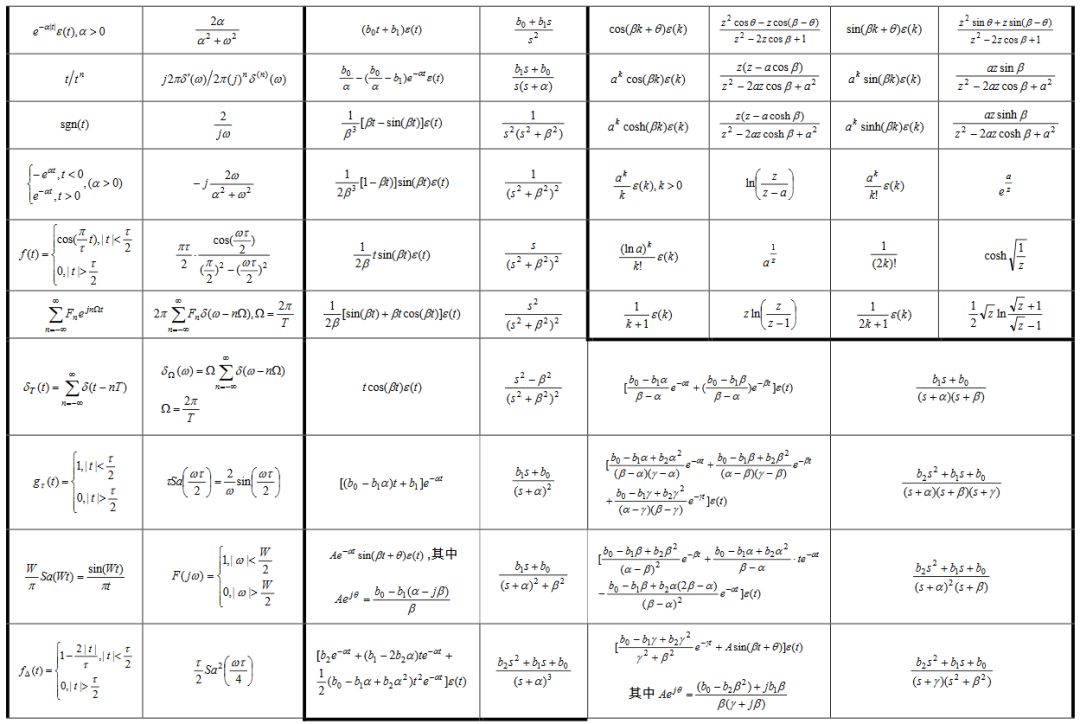 $e^{-\alpha|t|}\varepsilon(t),\alpha>0$ | $\frac{2\alpha}{\alpha^2+\omega^2}$ | $(b_0t+b_1)\varepsilon(t)$ | $\frac{b_0+b_1s}{s^2}$ | $\cos(\beta k+\theta)\varepsilon(k)$ | $\frac{z^2\cos\theta-z\cos(\beta-\theta)}{z^2-2z\cos\beta+1}$ | $\sin(\beta k+\theta)\varepsilon(k)$ | $\frac{z^2\sin\theta+z\sin(\beta-\theta)}{z^2-2z\cos\beta+1}$
$t/t^n$ | $j2\pi\delta'(\omega)/2\pi(j)^n\delta^{(n)}(\omega)$ | $\frac{b_0}{\alpha}-(\frac{b_0}{\alpha}-b_1)e^{-\alpha t}\varepsilon(t)$ | $\frac{b_1s+b_0}{s(s+\alpha)}$ | $a^k\cos(\beta k)\varepsilon(k)$ | $\frac{z(z-a\cos\beta)}{z^2-2az\cos\beta+a^2}$ | $a^k\sin(\beta k)\varepsilon(k)$ | $\frac{az\sin\beta}{z^2-2az\cos\beta+a^2}$
$\mathrm{sgn}(t)$ | $\frac{2}{j\omega}$ | $\frac{1}{\beta^3}[\beta t-\sin(\beta t)]\varepsilon(t)$ | $\frac{1}{s^2(s^2+\beta^2)}$ | $a^k\cosh(\beta k)\varepsilon(k)$ | $\frac{z(z-a\cosh\beta)}{z^2-2az\cosh\beta+a^2}$ | $a^k\sinh(\beta k)\varepsilon(k)$ | $\frac{az\sinh\beta}{z^2-2az\cosh\beta+a^2}$
$\begin{cases}-e^{\alpha t},t<0\\e^{-\alpha t},t>0\end{cases},(\alpha>0)$ | $-j\frac{2\omega}{\alpha^2+\omega^2}$ | $\frac{1}{2\beta^3}[1-\beta t)]\sin(\beta t)\varepsilon(t)$ | $\frac{1}{(s^2+\beta^2)^2}$ | $\frac{a^k}{k}\varepsilon(k),k>0$ | $\ln\left(\frac{z}{z-a}\right)$ | $\frac{a^k}{k!}\varepsilon(k)$ | $e^{\frac{a}{z}}$
$f(t)=\begin{cases}\cos(\frac{\pi}{\tau}t),|t|<\frac{\tau}{2}\\0,|t|>\frac{\tau}{2}\end{cases}$ | $\frac{\pi\tau}{2}\cdot\frac{\cos(\frac{\omega\tau}{2})}{(\frac{\pi}{2})^2-(\frac{\omega\tau}{2})^2}$ | $\frac{1}{2\beta}t\sin(\beta t)\varepsilon(t)$ | $\frac{s}{(s^2+\beta^2)^2}$ | $\frac{(\ln a)^k}{k!}\varepsilon(k)$ | $a^{\frac{1}{z}}$ | $\frac{1}{(2k)!}$ | $\cosh\sqrt{\frac{1}{z}}$
$\sum_{n=-\infty}^{\infty}F_ne^{jn\Omega t}$ | $2\pi\sum_{n=-\infty}^{\infty}F_n\delta(\omega-n\Omega),\Omega=\frac{2\pi}{T}$ | $\frac{1}{2\beta}[\sin(\beta t)+\beta t\cos(\beta t)]\varepsilon(t)$ | $\frac{s^2}{(s^2+\beta^2)^2}$ | $\frac{1}{k+1}\varepsilon(k)$ | $z\ln\left(\frac{z}{z-1}\right)$ | $\frac{1}{2k+1}\varepsilon(k)$ | $\frac{1}{2}\sqrt{z}\ln\frac{\sqrt{z}+1}{\sqrt{z}-1}$
$\delta_T(t)=\sum_{n=-\infty}^{\infty}\delta(t-nT)$ | $\delta_\Omega(\omega)=\Omega\sum_{n=-\infty}^{\infty}\delta(\omega-n\Omega)$ $\Omega=\frac{2\pi}{T}$ | $t\cos(\beta t)\varepsilon(t)$ | $\frac{s^2-\beta^2}{(s^2+\beta^2)^2}$ | $[\frac{b_0-b_1\alpha}{\beta-\alpha}e^{-\alpha t}+(\frac{b_0-b_1\beta}{\beta-\alpha})e^{-\beta t}]\varepsilon(t)$ | $\frac{b_1s+b_0}{(s+\alpha)(s+\beta)}$
$g_\tau(t)=\begin{cases}1,|t|<\frac{\tau}{2}\\0,|t|>\frac{\tau}{2}\end{cases}$ | $\tau Sa\left(\frac{\omega\tau}{2}\right)=\frac{2}{\omega}\sin\left(\frac{\omega\tau}{2}\right)$ | $[(b_0-b_1\alpha)t+b_1]e^{-\alpha t}$ | $\frac{b_1s+b_0}{(s+\alpha)^2}$ | $[\frac{b_0-b_1\alpha+b_2\alpha^2}{(\beta-\alpha)(\gamma-\alpha)}e^{-\alpha t}+\frac{b_0-b_1\beta+b_2\beta^2}{(\alpha-\beta)(\gamma-\beta)}e^{-\beta t}$ $+\frac{b_0-b_1\gamma+b_2\gamma^2}{(\alpha-\gamma)(\beta-\gamma)}e^{-\gamma t}]\varepsilon(t)$ | $\frac{b_2s^2+b_1s+b_0}{(s+\alpha)(s+\beta)(s+\gamma)}$
$\frac{W}{\pi}Sa(Wt)=\frac{\sin(Wt)}{\pi t}$ | $F(j\omega)=\begin{cases}1,|\omega|<\frac{W}{2}\\0,|\omega|>\frac{W}{2}\end{cases}$ | $Ae^{-\alpha t}\sin(\beta t+\theta)\varepsilon(t)$ ,其中 $Ae^{j\theta}=\frac{b_0-b_1(\alpha-j\beta)}{\beta}$ | $\frac{b_1s+b_0}{(s+\alpha)^2+\beta^2}$ | $[\frac{b_0-b_1\beta+b_2\beta^2}{(\alpha-\beta)^2}e^{-\beta t}+\frac{b_0-b_1\alpha+b_2\alpha^2}{\beta-\alpha}\cdot te^{-\alpha t}$ $-\frac{b_0-b_1\beta+b_2\alpha(2\beta-\alpha)}{(\beta-\alpha)^2}e^{-\alpha t}]\varepsilon(t)$ | $\frac{b_2s^2+b_1s+b_0}{(s+\alpha)^2(s+\beta)}$
$f_\Delta(t)=\begin{cases}1-\frac{2|t|}{\tau},|t|<\frac{\tau}{2}\\0,|t|>\frac{\tau}{2}\end{cases}$ | $\frac{\tau}{2}Sa^2\left(\frac{\omega\tau}{4}\right)$ | $[b_2e^{-\alpha t}+(b_1-2b_2\alpha)te^{-\alpha t}+$ $\frac{1}{2}(b_0-b_1\alpha+b_2\alpha^2)t^2e^{-\alpha t}]\varepsilon(t)$ | $\frac{b_2s^2+b_1s+b_0}{(s+\alpha)^3}$ | $[\frac{b_0-b_1\gamma+b_2\gamma^2}{\gamma^2+\beta^2}e^{-\gamma t}+A\sin(\beta t+\theta)]\varepsilon(t)$ 其中 $Ae^{j\theta}=\frac{(b_0-b_2\beta^2)+jb_1\beta}{\beta(\gamma+j\beta)}$ | $\frac{b_2s^2+b_1s+b_0}{(s+\gamma)(s^2+\beta^2)}$